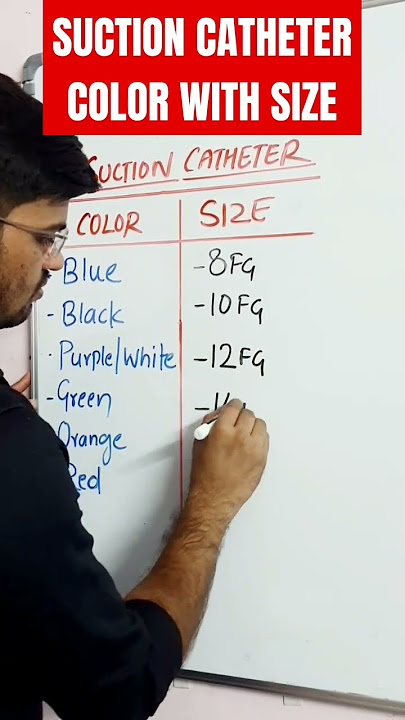 SUCTION CATHETER
COLOR WITH SIZE
SUCTION CATHETER
COLOR SIZE
- Blue - 8FG
- Black - 10FG
· Purple/White - 12FG
- Green
Orange
Red